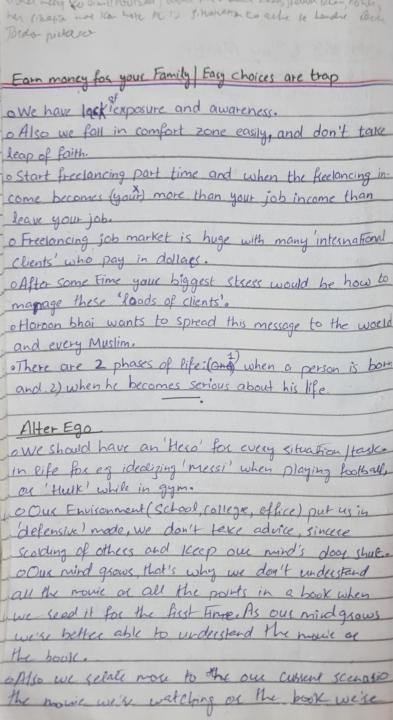 Jordan peterson
Earn money for your Family | Easy choices are trap
o We have lack of exposure and awareness.
o Also we fall in comfort zone easily, and don't take
leap of faith.
o Start freelancing part time and when the freelancing in-
come becomes (your) more than your job income than
leave your job.
o Freelancing job market is huge with many 'international
clients' who pay in dollars.
o After some time your biggest stress would be how to
manage these 'loads of clients'.
o Haroon bhai wants to spread this message to the world
and every Muslim.
o There are 2 phases of life: 1) when a person is born
and 2) when he becomes serious about his life.
Alter Ego
o We should have an 'Hero' for every situation/task
in life for eg idealizing 'messi' when playing football,
or 'Hulk' while in gym.
o Our Environment (school, college, office) put us in
'defensive' mode, we don't take advice, sincere
scolding of others and keep our mind's door shut.
o Our mind grows, that's why we don't understand
all the movie or all the points in a book when
we read it for the first time. As our mind grows
we're better able to understand the movie or
the book.
o Also we relate more to the our current scenario
the movie we're watching or the book we're